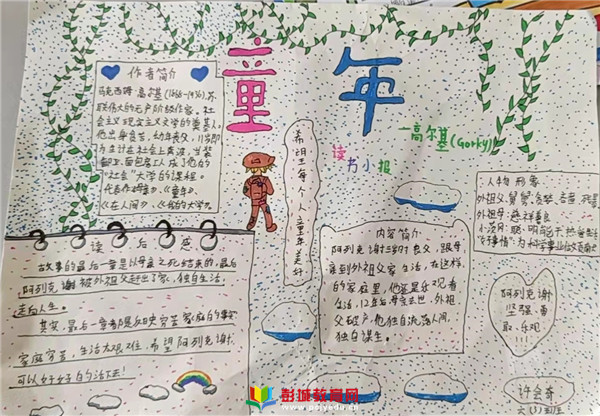 童年
—高尔基(Gorky)
读书小报
作者简介
马克西姆·高尔基(1868-1936),苏
联伟大的无产阶级作家,社
会主义现实主义文学的奠基人。
他出身贫苦,幼年丧父,11岁即
为生计在社会上奔波,当装
卸工,面包房工人,成了他的
“社会”大学的课程
代表作《母亲》、《童年》、
《在人间》、《我的大学》。
希望每个人童年美好
人物形象
外祖父:
外祖母:慈祥善良
内容简介
阿列克谢三岁时丧父,跟母
亲到外祖父家生活,在这样
的家庭里,他还是乐观着
生活,12年后母亲去世,外祖
父破产,他独自流落人间,
独自谋生。
阿列克谢
坚强、勇
敢、乐观
!!!
读后感
故事的最后一章是以母亲之死结束的,最后
阿列克谢被外祖父赶出了家,独自生活,
走向人生。
其实,最后一章都是历史穷苦家庭的事实
家庭穷苦,生活太艰难,希望阿列克谢
可以好好的活下去!
许会奇
六(1)班
彭城教育网
www.pcjyedu.cn